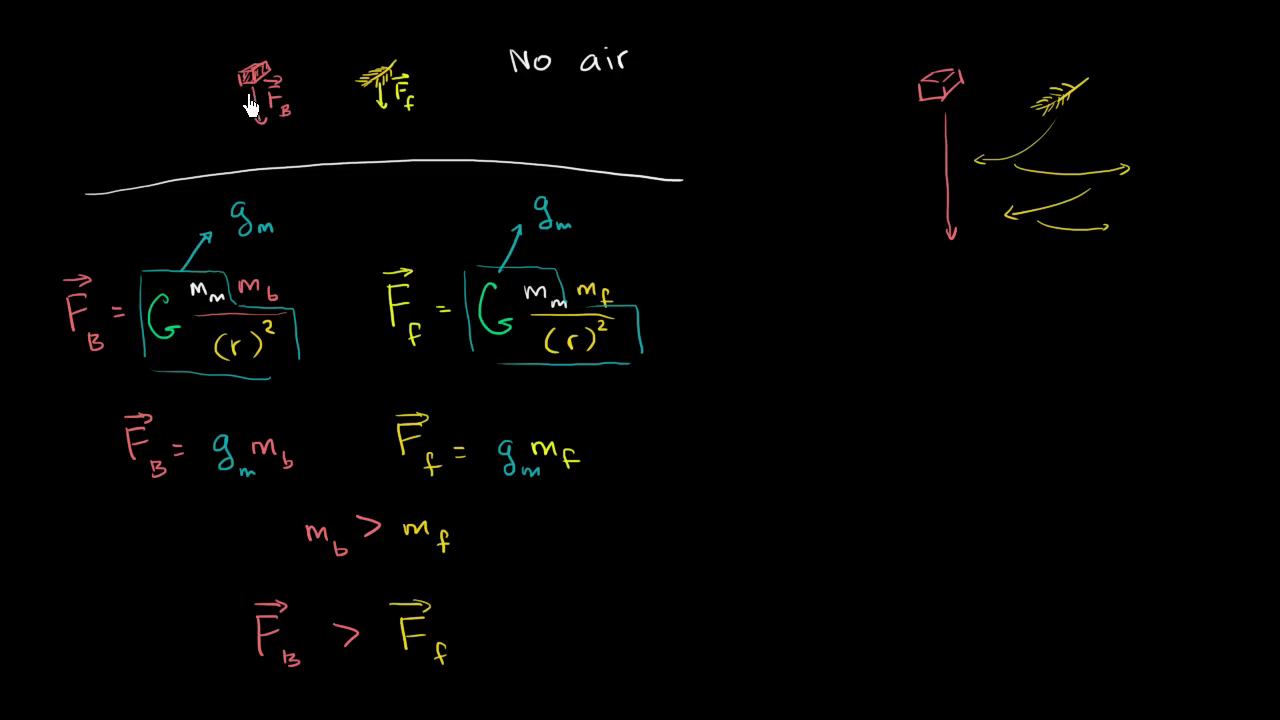 No air
F⃗_B F⃗_f
g_m g_m
F⃗_B = G m_m m_b / (r)² F⃗_f = G m_m m_f / (r)²
F⃗_B = g_m m_b F⃗_f = g_m m_f
m_b > m_f
F⃗_B > F⃗_f